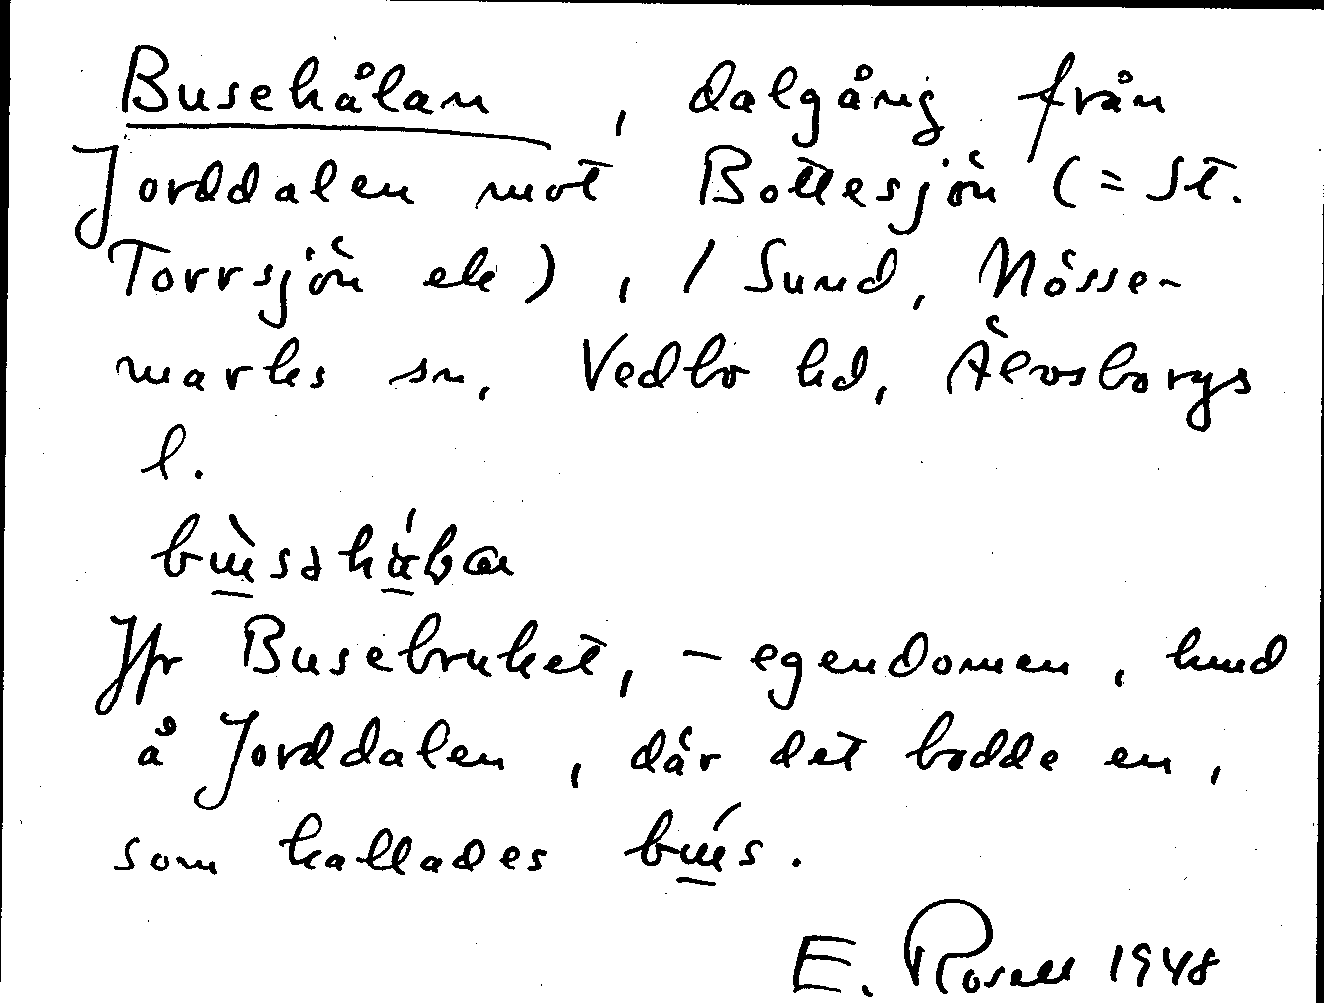 Busehålan, dalgång från
Jorddalen mot Bottesjön (= St.
Torrsjön ek), / Sund, Nösse-
marks sn, Vedbo hd, Älvsborgs
l.
Jfr Busebruket, - egendomen, hmd
å Jorddalen, där det bodde en,
som kallades
E. Rosell 1948